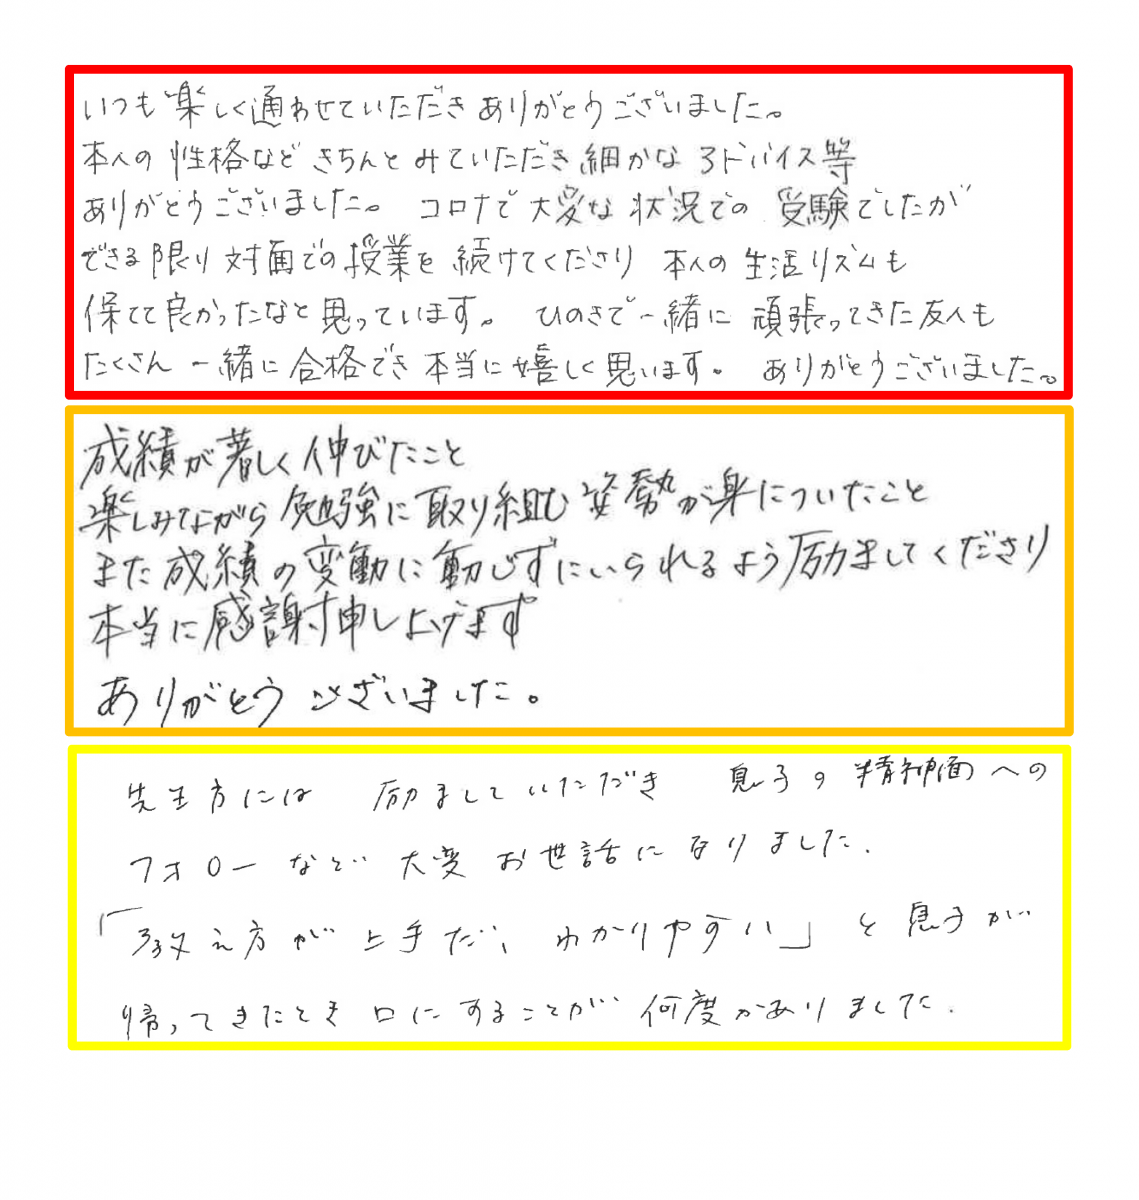 いつも楽しく通わせていただきありがとうございました。
本人の性格などきちんとみていただき細かなアドバイス等
ありがとうございました。コロナで大変な状況での受験でしたが
できる限り対面での授業を続けてくださり本人の生活リズムも
保てて良かったなと思っています。ひのきで一緒に頑張ってきた友人も
たくさん一緒に合格でき本当に嬉しく思います。ありがとうございました。
成績が著しく伸びたこと
楽しみながら勉強に取り組む姿勢が身についたこと
また成績の変動に動じずにいられるよう励ましてくださり
本当に感謝申し上げます
ありがとうございました。
先生方には 励ましていただき 息子の精神面への
フォローなど大変お世話になりました.
「教え方が上手だ、わかりやすい」と息子が
帰ってきたとき口にすることが何度かありました.